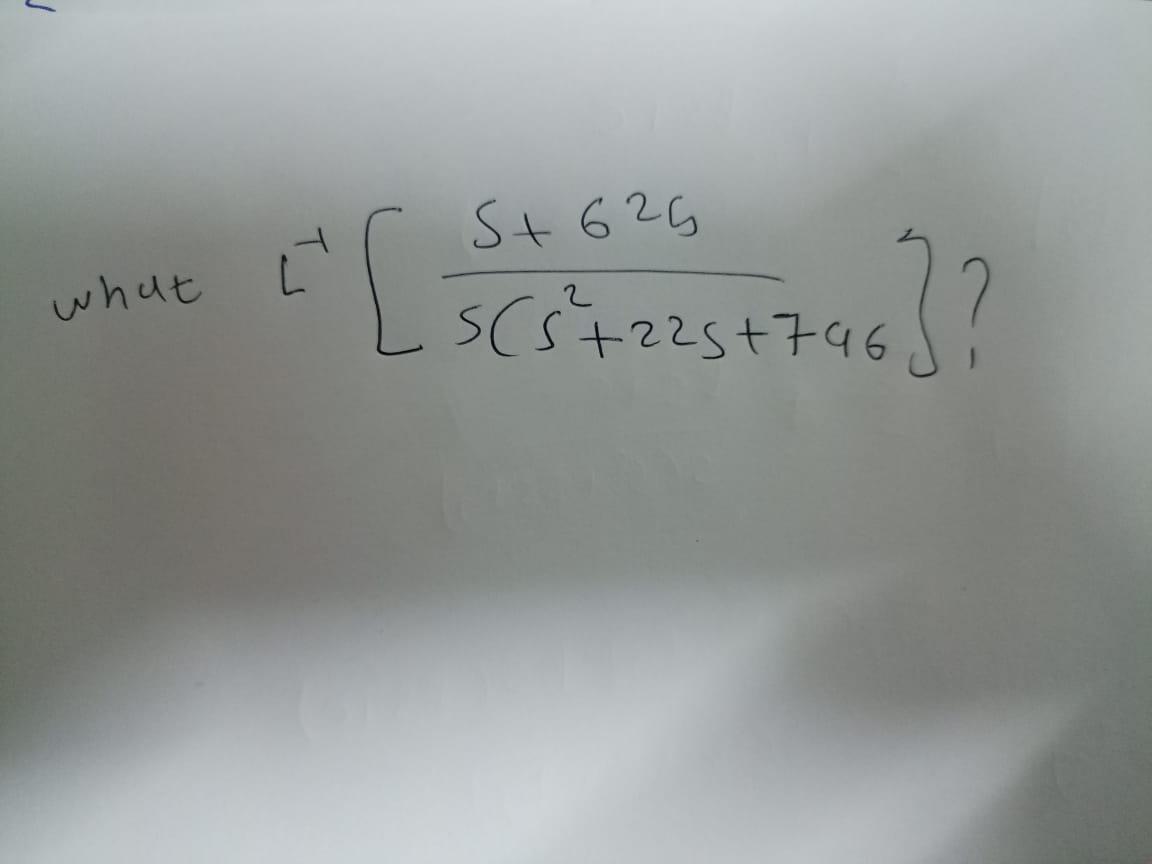 what L⁻¹ [ s + 625
s(s²+22s+746 ] ?